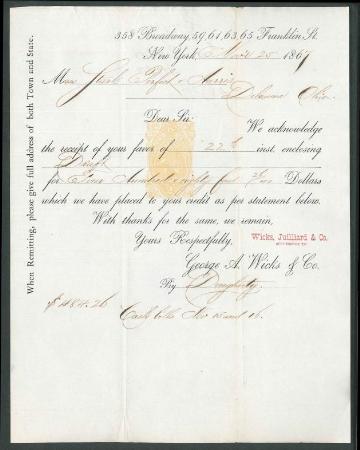 358 Broadway, 59, 61, 63, 65 Franklin St.
New York, 25 1867
Mess
Delaware Ohio
Dear Sir:
We acknowledge
the receipt of your favor of 22d inst. enclosing
Draft
for Four Hundred eighty four 26/100 Dollars
which we have placed to your credit as per statement below.
With thanks for the same, we remain,
Yours Respectfully,
Wicks, Juilliard & Co.
George A. Wicks & Co.
By Dougherty
$484.26
Cash bills Nov 15 and 16.
When Remitting, please give full address of both Town and State.